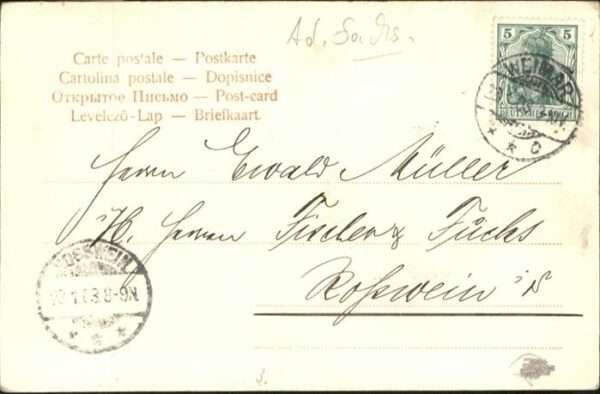 Ad. Sachs.
5 5
WEIMAR
* * c
DEUTSCHES REICH
Carte postale — Postkarte
Cartolina postale — Dopisnice
Открытое Письмо — Post-card
Levelező-Lap — Briefkaart
Herrn Ewald Müller
Herren Fischer & Fuchs
Roßwein
ROSSWEIN
8-9N.
* * *